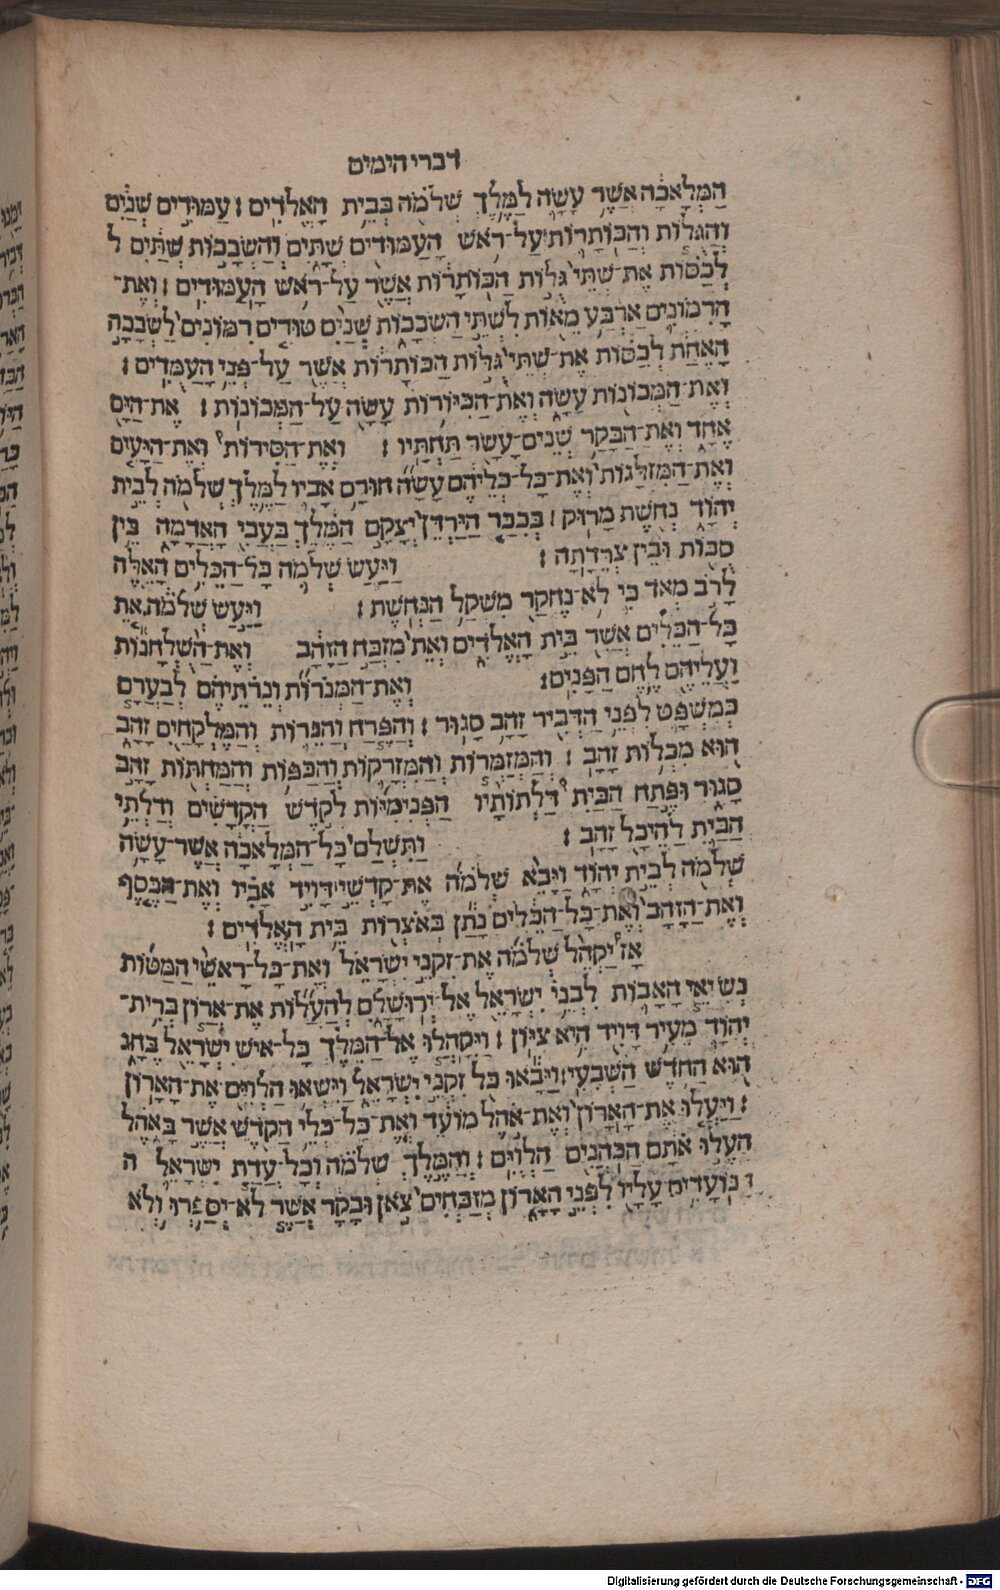 דברי הימים
הַמְּלָאכָה אֲשֶׁר עָשָׂה לַמֶּלֶךְ שְׁלֹמֹה בְּבֵית הָאֱלֹדִים : עַמּוּדִים שְׁנַיִם
וְהַגֻּלּוֹת וְהַכּוֹתָרוֹת עַל־רֹאשׁ הָעַמּוּדִים שְׁתָּיִם וְהַשְּׂבָכוֹת שְׁתַּיִם ל
לְכַסּוֹת אֶת־שְׁתֵּי גֻּלּוֹת הַכּוֹתָרוֹת אֲשֶׁר עַל־רֹאשׁ הָעַמּוּדִים : וְאֶת־
הָרִמּוֹנִים אַרְבַּע מֵאוֹת לִשְׁתֵּי הַשְּׂבָכוֹת שְׁנַיִם טוּרִים רִמּוֹנִים לַשְּׂבָכָה
הָאֶחָת לְכַסּוֹת אֶת־שְׁתֵּי גֻּלּוֹת הַכּוֹתָרוֹת אֲשֶׁר עַל־פְּנֵי הָעַמֻּדִים :
וְאֶת־הַמְּכוֹנוֹת עָשָׂה וְאֶת־הַכִּיּוֹרוֹת עָשָׂה עַל־הַמְּכוֹנוֹת : אֶת־הַיָּם
אֶחָד וְאֶת־הַבָּקָר שְׁנֵים־עָשָׂר תַּחְתָּיו : וְאֶת־הַסִּירוֹת וְאֶת־הַיָּעִים
וְאֶת־הַמִּזְלָגוֹת וְאֶת־כָּל־כְּלֵיהֶם עָשָׂה חוּרָם אָבִיו לַמֶּלֶךְ שְׁלֹמֹה לְבֵית
יְהוָֹד נְחֹשֶׁת מָרוּק : בְּכִכַּר הַיַּרְדֵּן יְצָקָם הַמֶּלֶךְ בַּעֲבִי הָאֲדָמָה בֵּין
סֻכּוֹת וּבֵין צְרֵדָתָה : וַיַּעַשׂ שְׁלֹמֹה כָּל־הַכֵּלִים הָאֵלֶּה
לָרֹב מְאֹד כִּי לֹא־נֶחְקַר מִשְׁקַל הַנְּחֹשֶׁת : וַיַּעַשׂ שְׁלֹמֹה אֵת
כָּל־הַכֵּלִים אֲשֶׁר בֵּית הָאֱלֹדִים וְאֵת מִזְבַּח הַזָּהָב וְאֶת־הַשֻּׁלְחָנוֹת
וַעֲלֵיהֶם לֶחֶם הַפָּנִים : וְאֶת־הַמְּנֹרוֹת וְנֵרֹתֵיהֶם לְבַעֲרָם
כַּמִּשְׁפָּט לִפְנֵי הַדְּבִיר זָהָב סָגוּר : וְהַפֶּרַח וְהַנֵּרוֹת וְהַמֶּלְקָחַיִם זָהָב
הוּא מִכְלוֹת זָהָב : וְהַמְזַמְּרוֹת וְהַמִּזְרָקוֹת וְהַכַּפּוֹת וְהַמַּחְתּוֹת זָהָב
סָגוּר וּפֶתַח הַבַּיִת דַּלְתוֹתָיו הַפְּנִימִיּוֹת לְקֹדֶשׁ הַקֳּדָשִׁים וְדַלְתֵי
הַבַּיִת לַהֵיכָל זָהָב : וַתִּשְׁלַם כָּל־הַמְּלָאכָה אֲשֶׁר־עָשָׂה
שְׁלֹמֹה לְבֵית יְהוָֹד וַיָּבֵא שְׁלֹמֹה אֶת־קָדְשֵׁי דָּוִיד אָבִיו וְאֶת־הַכֶּסֶף
וְאֶת־הַזָּהָב וְאֶת־כָּל־הַכֵּלִים נָתַן בְּאֹצְרוֹת בֵּית הָאֱלֹדִים :
אָז יַקְהֵל שְׁלֹמֹה אֶת־זִקְנֵי יִשְׂרָאֵל וְאֶת־כָּל־רָאשֵׁי הַמַּטּוֹת
נְשִׂיאֵי הָאָבוֹת לִבְנֵי יִשְׂרָאֵל אֶל־יְרוּשָׁלִָם לְהַעֲלוֹת אֶת־אֲרוֹן בְּרִית־
יְהוָֹד מֵעִיר דָּוִיד הִיא צִיּוֹן : וַיִּקָּהֲלוּ אֶל־הַמֶּלֶךְ כָּל־אִישׁ יִשְׂרָאֵל בֶּחָג
הוּא הַחֹדֶשׁ הַשְּׁבִעִי : וַיָּבֹאוּ כֹּל זִקְנֵי יִשְׂרָאֵל וַיִּשְׂאוּ הַלְוִיִּם אֶת־הָאָרוֹן
: וַיַּעֲלוּ אֶת־הָאָרוֹן וְאֶת־אֹהֶל מוֹעֵד וְאֶת־כָּל־כְּלֵי הַקֹּדֶשׁ אֲשֶׁר בָּאֹהֶל
הֶעֱלוּ אֹתָם הַכֹּהֲנִים הַלְוִיִּם : וְהַמֶּלֶךְ שְׁלֹמֹה וְכָל־עֲדַת יִשְׂרָאֵל ה
נּוֹעָדִים עָלָיו לִפְנֵי הָאָרוֹן מְזַבְּחִים צֹאן וּבָקָר אֲשֶׁר לֹא־יִסָּפְרוּ וְלֹא
Digitalisierung gefördert durch die Deutsche Forschungsgemeinschaft - DFG